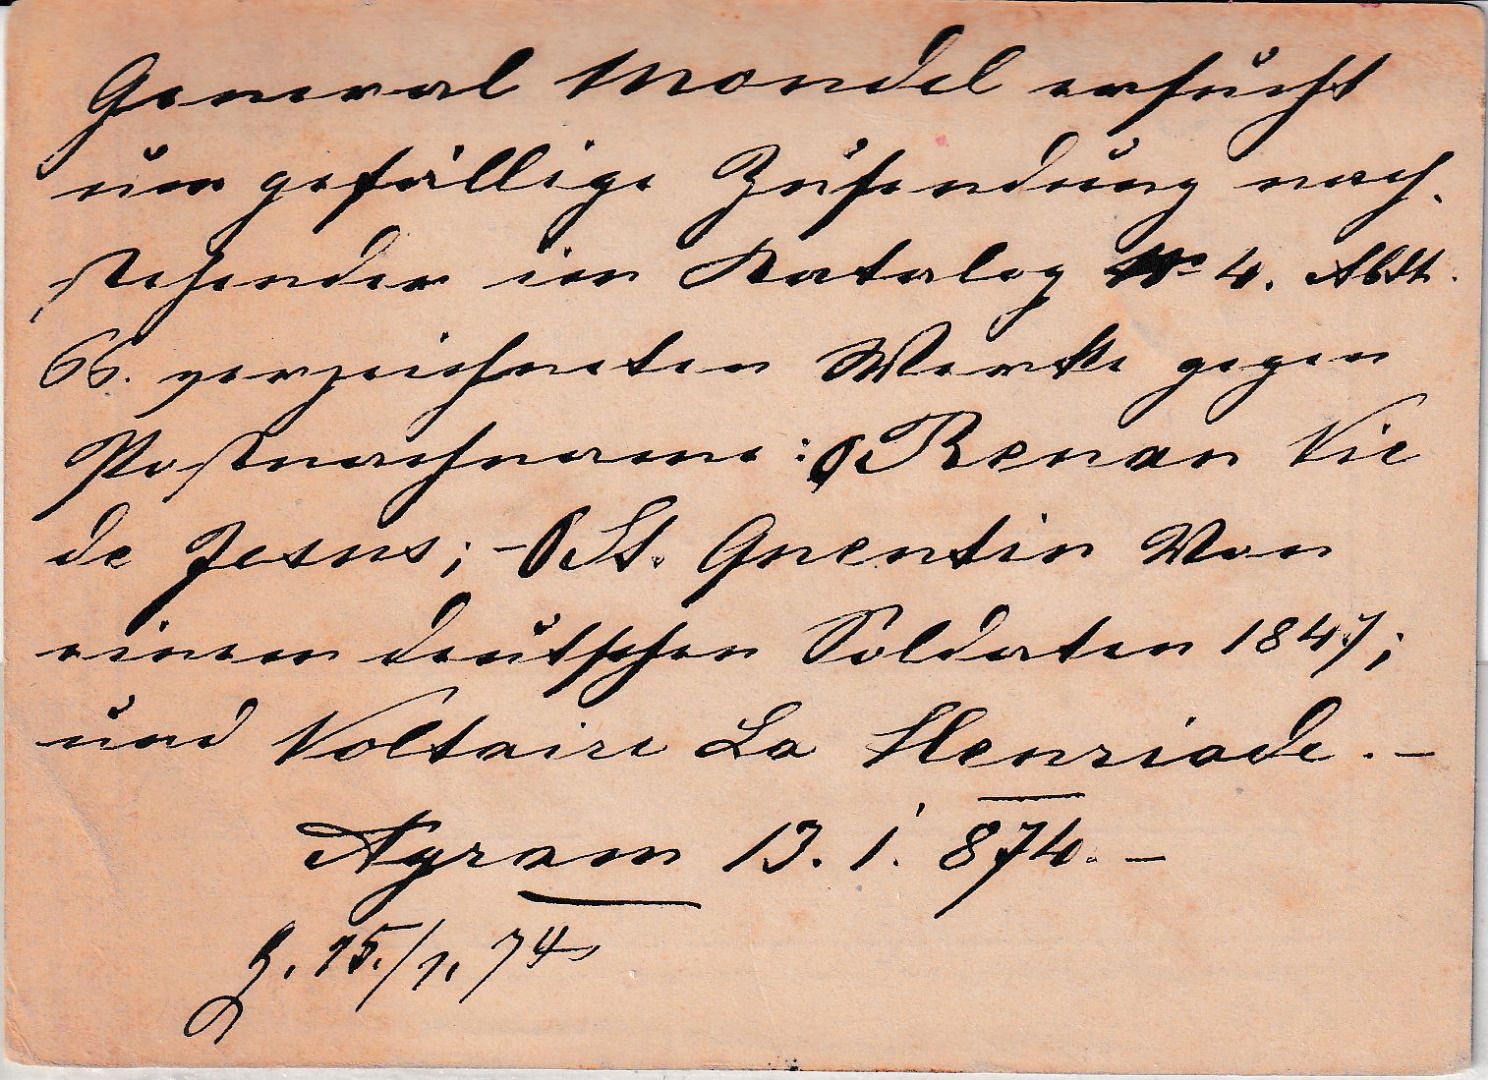 General Mondel ersucht
um gefällige Zusendung nach-
stehender im Katalog No 4. Abth.
66. verzeichneten Werke gegen
Postnachname: Renan Vie
de Jesus; - St. Quentin Von
einem deutschen Soldaten 1847;
und Voltaire La Henriade. -
Agram 13. 1. 874. -
15./1. 74